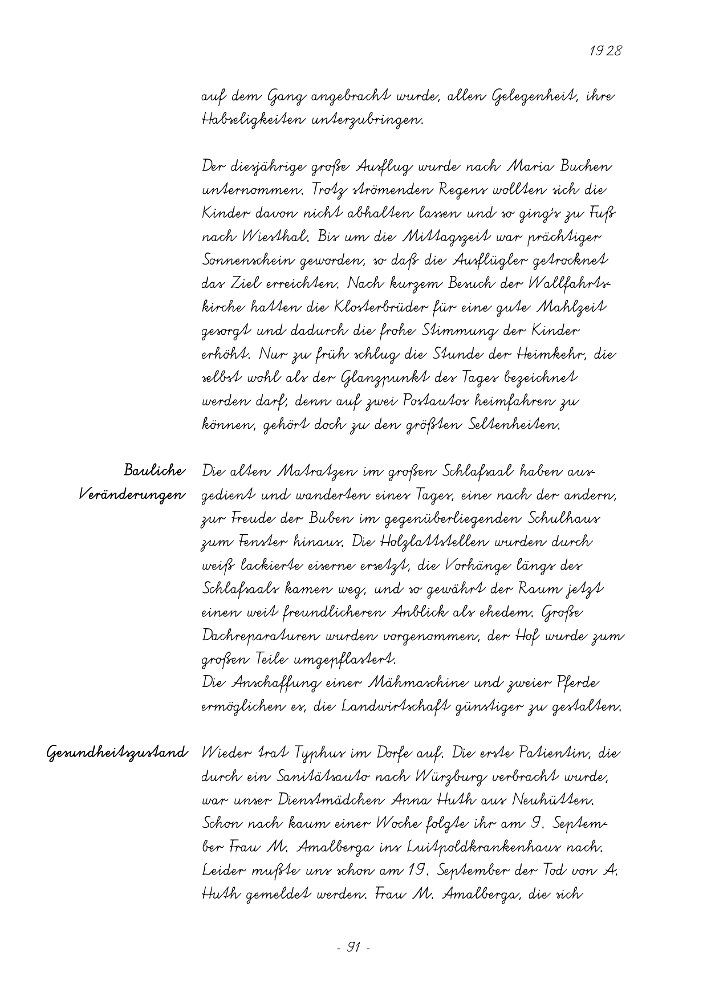 1928
auf dem Gang angebracht wurde, allen Gelegenheit, ihre
Habseligkeiten unterzubringen.
Der diesjährige große Ausflug wurde nach Maria Buchen
unternommen. Trotz strömenden Regens wollten sich die
Kinder davon nicht abhalten lassen und so ging's zu Fuß
nach Wiesthal. Bis um die Mittagszeit war prächtiger
Sonnenschein geworden, so daß die Ausflügler getrocknet
das Ziel erreichten. Nach kurzem Besuch der Wallfahrts-
kirche hatten die Klosterbrüder für eine gute Mahlzeit
gesorgt und dadurch die frohe Stimmung der Kinder
erhöht. Nur zu früh schlug die Stunde der Heimkehr, die
selbst wohl als der Glanzpunkt des Tages bezeichnet
werden darf; denn auf zwei Postautos heimfahren zu
können, gehört doch zu den größten Seltenheiten.
Bauliche Die alten Matratzen im großen Schlafsaal haben aus-
Veränderungen gedient und wanderten eines Tages, eine nach der andern,
zur Freude der Buben im gegenüberliegenden Schulhaus
zum Fenster hinaus. Die Holzlattstellen wurden durch
weiß lackierte eiserne ersetzt, die Vorhänge längs des
Schlafsaals kamen weg, und so gewährt der Raum jetzt
einen weit freundlicheren Anblick als ehedem. Große
Dachreparaturen wurden vorgenommen, der Hof wurde zum
großen Teile umgepflastert.
Die Anschaffung einer Mähmaschine und zweier Pferde
ermöglichen es, die Landwirtschaft günstiger zu gestalten.
Gesundheitszustand Wieder trat Typhus im Dorfe auf. Die erste Patientin, die
durch ein Sanitätsauto nach Würzburg verbracht wurde,
war unser Dienstmädchen Anna Huth aus Neuhütten.
Schon nach kaum einer Woche folgte ihr am 9. Septem-
ber Frau M. Amalberga ins Luitpoldkrankenhaus nach.
Leider mußte uns schon am 19. September der Tod von A.
Huth gemeldet werden. Frau M. Amalberga, die sich
- 91 -